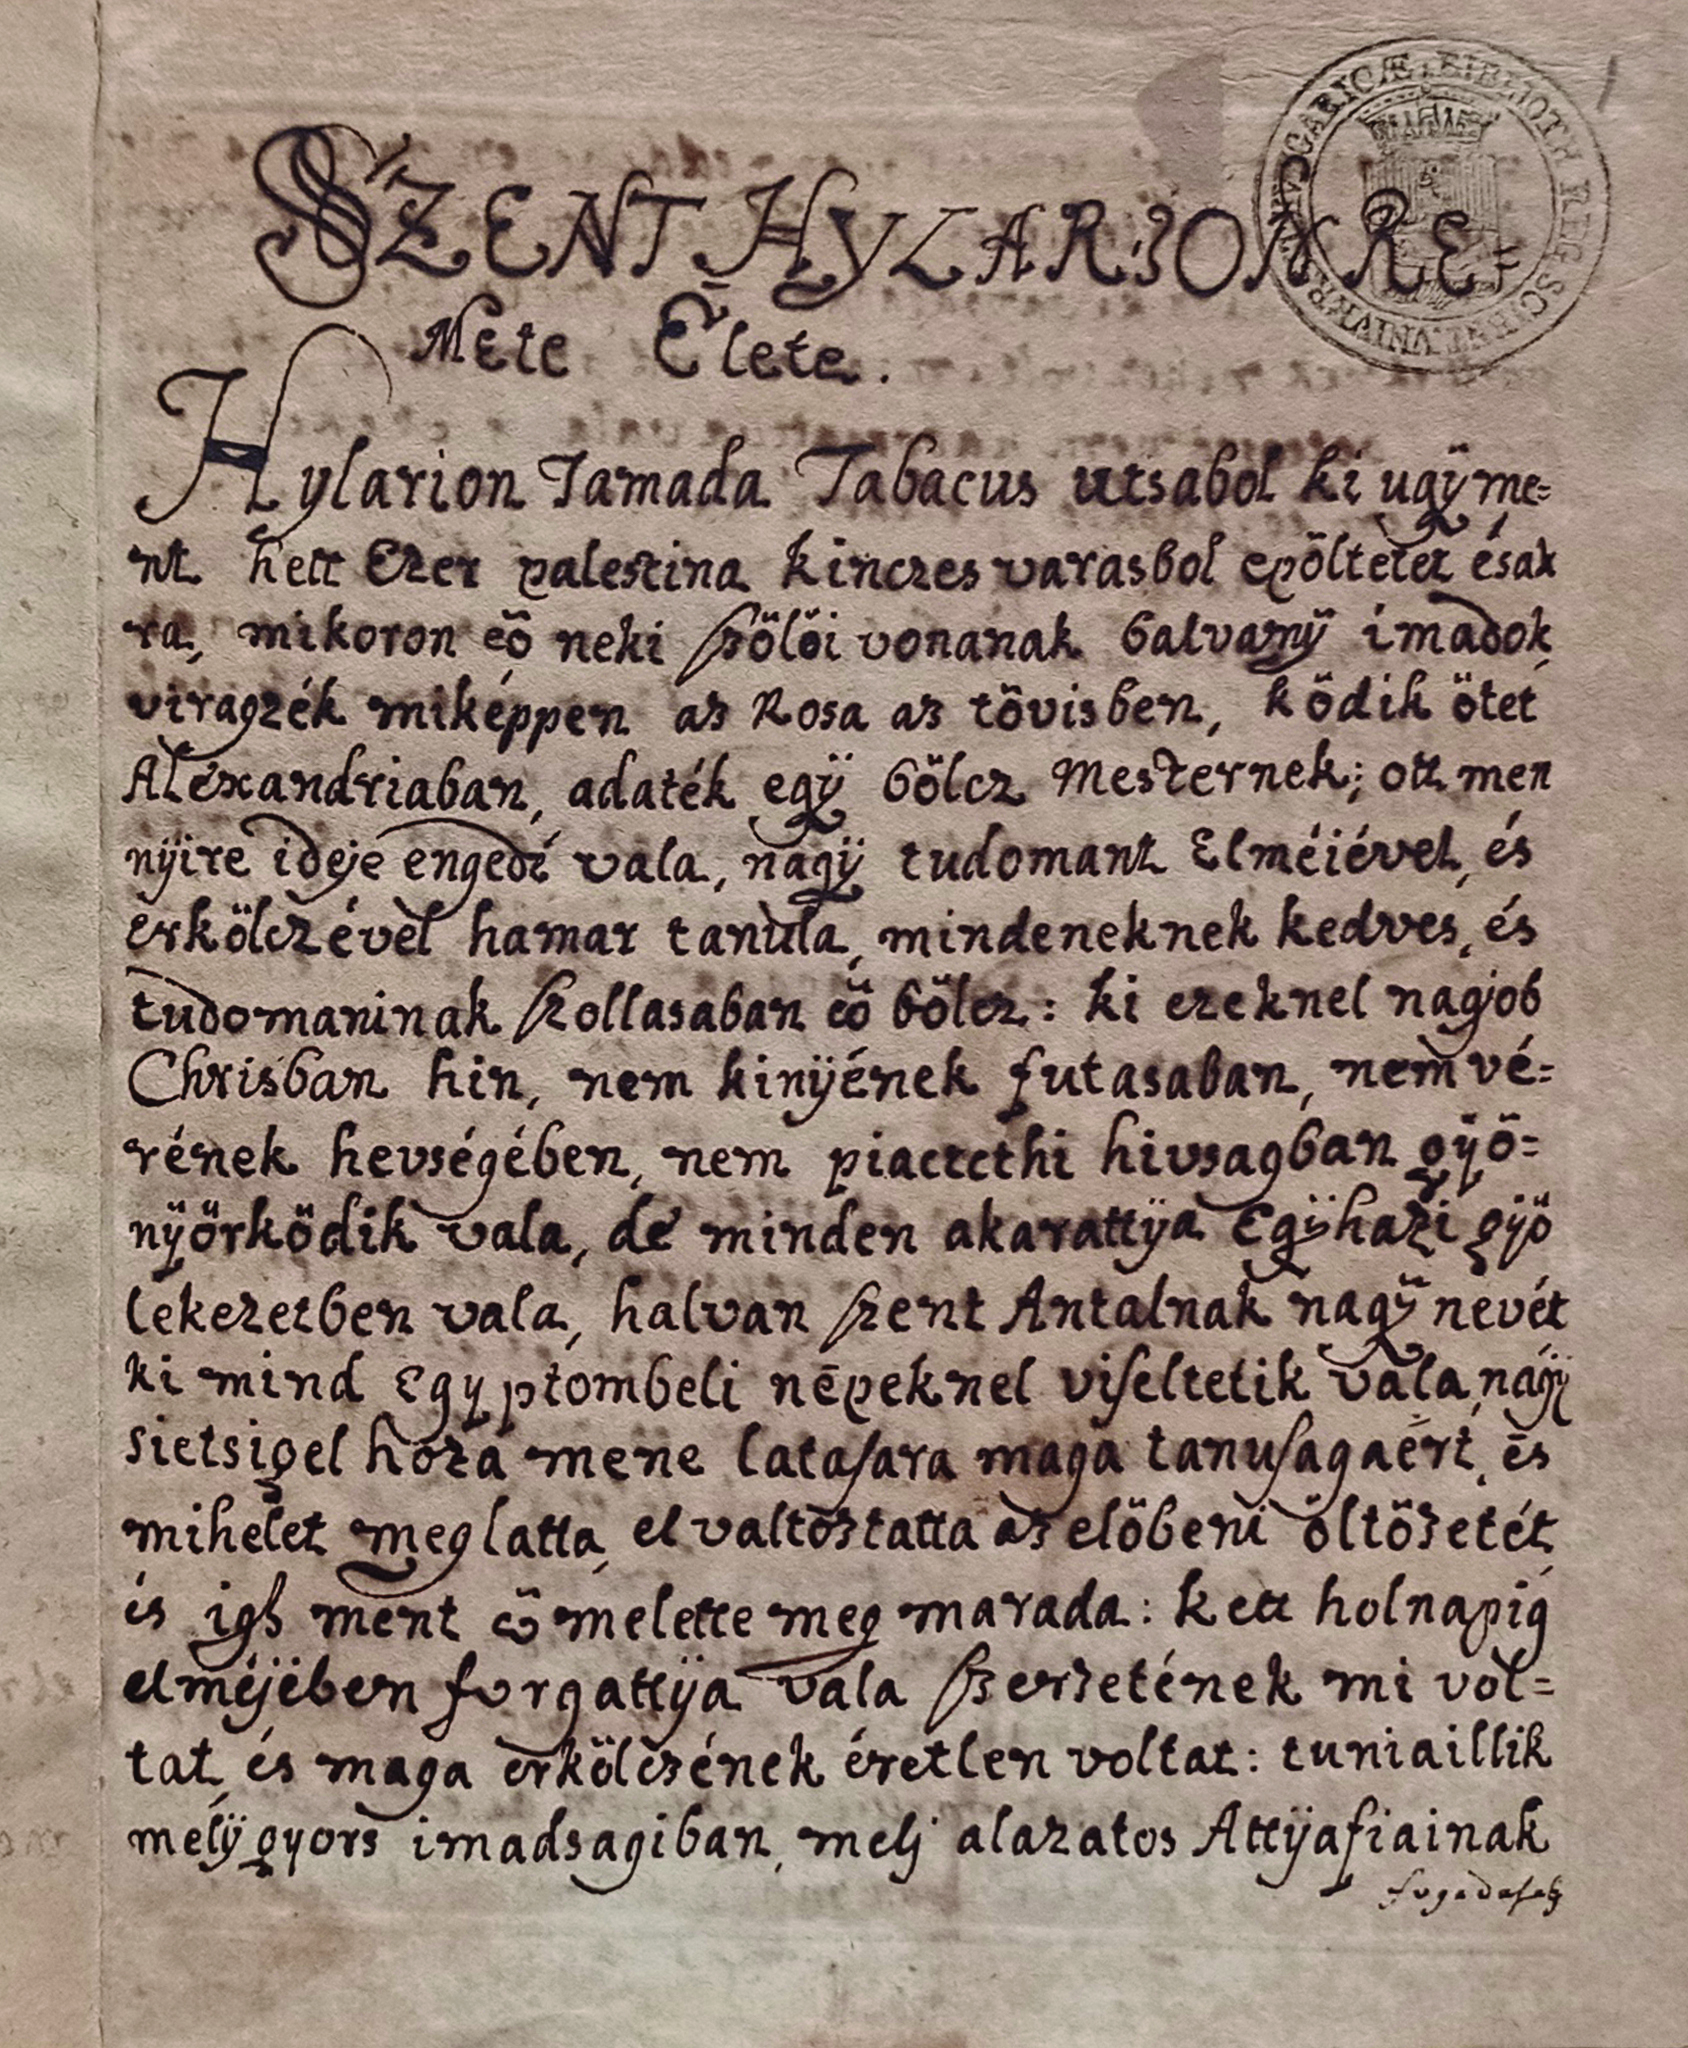 SZENT HYLARION RE=
Mete Élete.
Hylarion Tamada Tabacus utsabol ki ugÿ me=
nt hett Ezer palestina kinczes varasbol epöltetet ésak
ra, mikoron eö neki szölöi vonanak balvanÿ imadok,
viragzék miképpen az Rosa az tövisben, ködik ötet
Aléxandriaban, adaték egÿ bölcz Mesternek; ott men
nÿire ideje engedé vala, nagÿ tudomant Elméiével, és
erkölczével hamar tanula, mindeneknek kedves, és
tudomaninak szollasaban eö bölcz: ki ezeknel nagjob
Chrisban hin, nem kinÿének futasaban, nem vé=
rének hevségében, nem piacctethi hivsagban gÿö=
nÿörködik vala, de minden akarattÿa Egÿhazi gÿö
lekezetben vala, halvan szent Antalnak nagÿ nevét
ki mind Egyptombeli népeknel viseltetik vala, nagÿ
sietsigel hoza mene latasara maga tanusagaért, és
mihelet meg latta, el valtoztatta az elöbeni öltözetét,
és igh ment eö melette meg marada: kett holnapig
elméjében forgattÿa vala szerzetének mi vol=
tat, és maga erkölczének éretlen voltat: tuniaillik
melÿ gyors imadsagiban, melj alazatos Attÿafiainak
fogadasab
UNIVERSITATIS HUNGARICÆ BIBLIOTH REG SCIENT